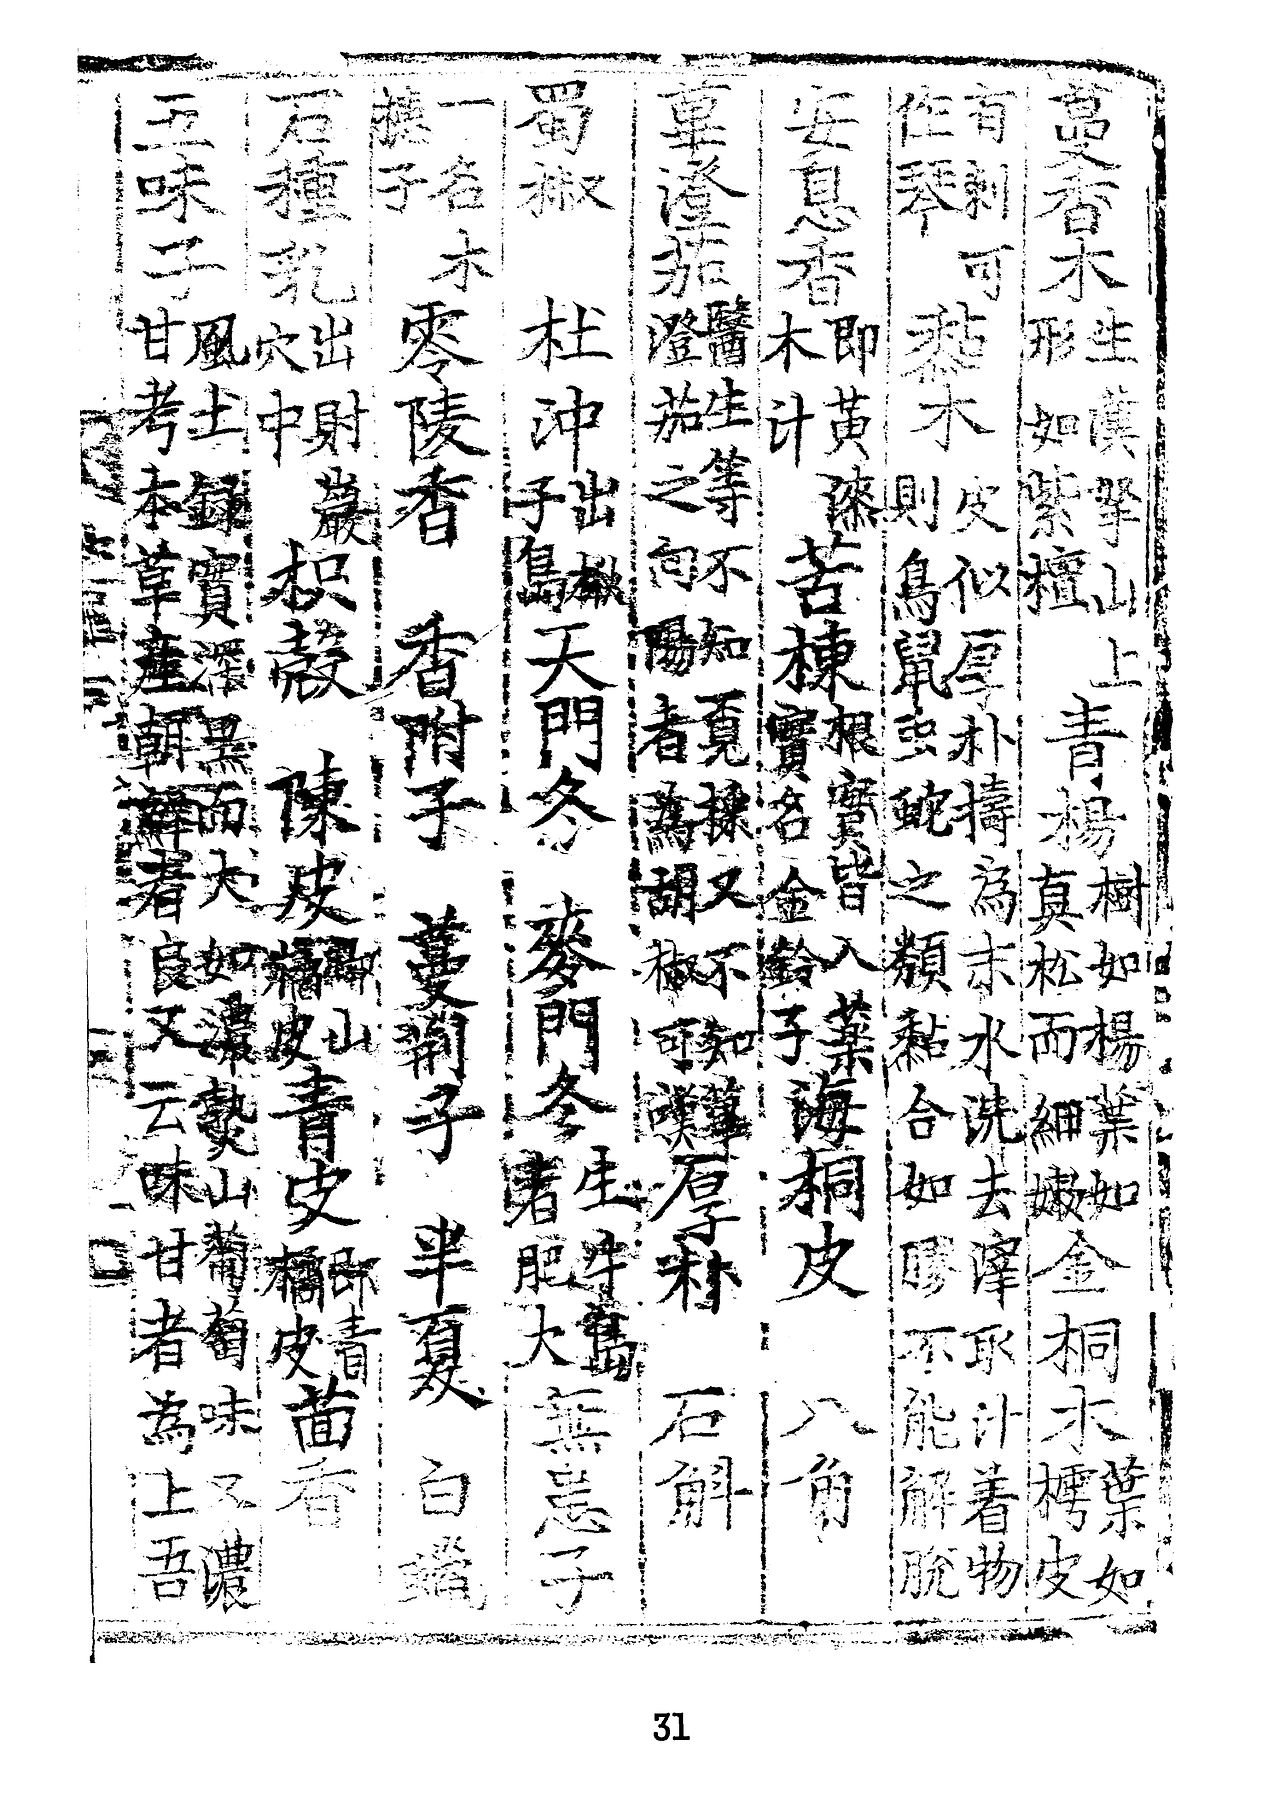 蒕香木生漢拏山上形如紫檀青楊樹如楊葉如真松而細嫩金桐木葉如樗皮
有刺可作琴黏木皮似厚朴擣為末水洗去滓取汁着物則鳥鼠虫蛇之類黏合如膠不能解脫
安息香即黃漆木汁苦楝根實皆入藥實名金鈴子海桐皮 八角
蓽澄茄醫生等不知覓採又不知蓽澄茄之向陽者為胡椒可嘆厚朴 石斛
蜀椒 杜沖出楸子島天門冬 麥門冬生牛島者肥大無患子
一名木槵子零陵香 香附子 蔓荊子 半夏 白蠟
石種乳出財巖穴中枳殼 陳皮即山橘皮青皮即青橘皮茴香
五味子風土錄實深黑而大如濃熟山葡萄味又濃甘考本草產朝鮮者良又云味甘者為上吾
31